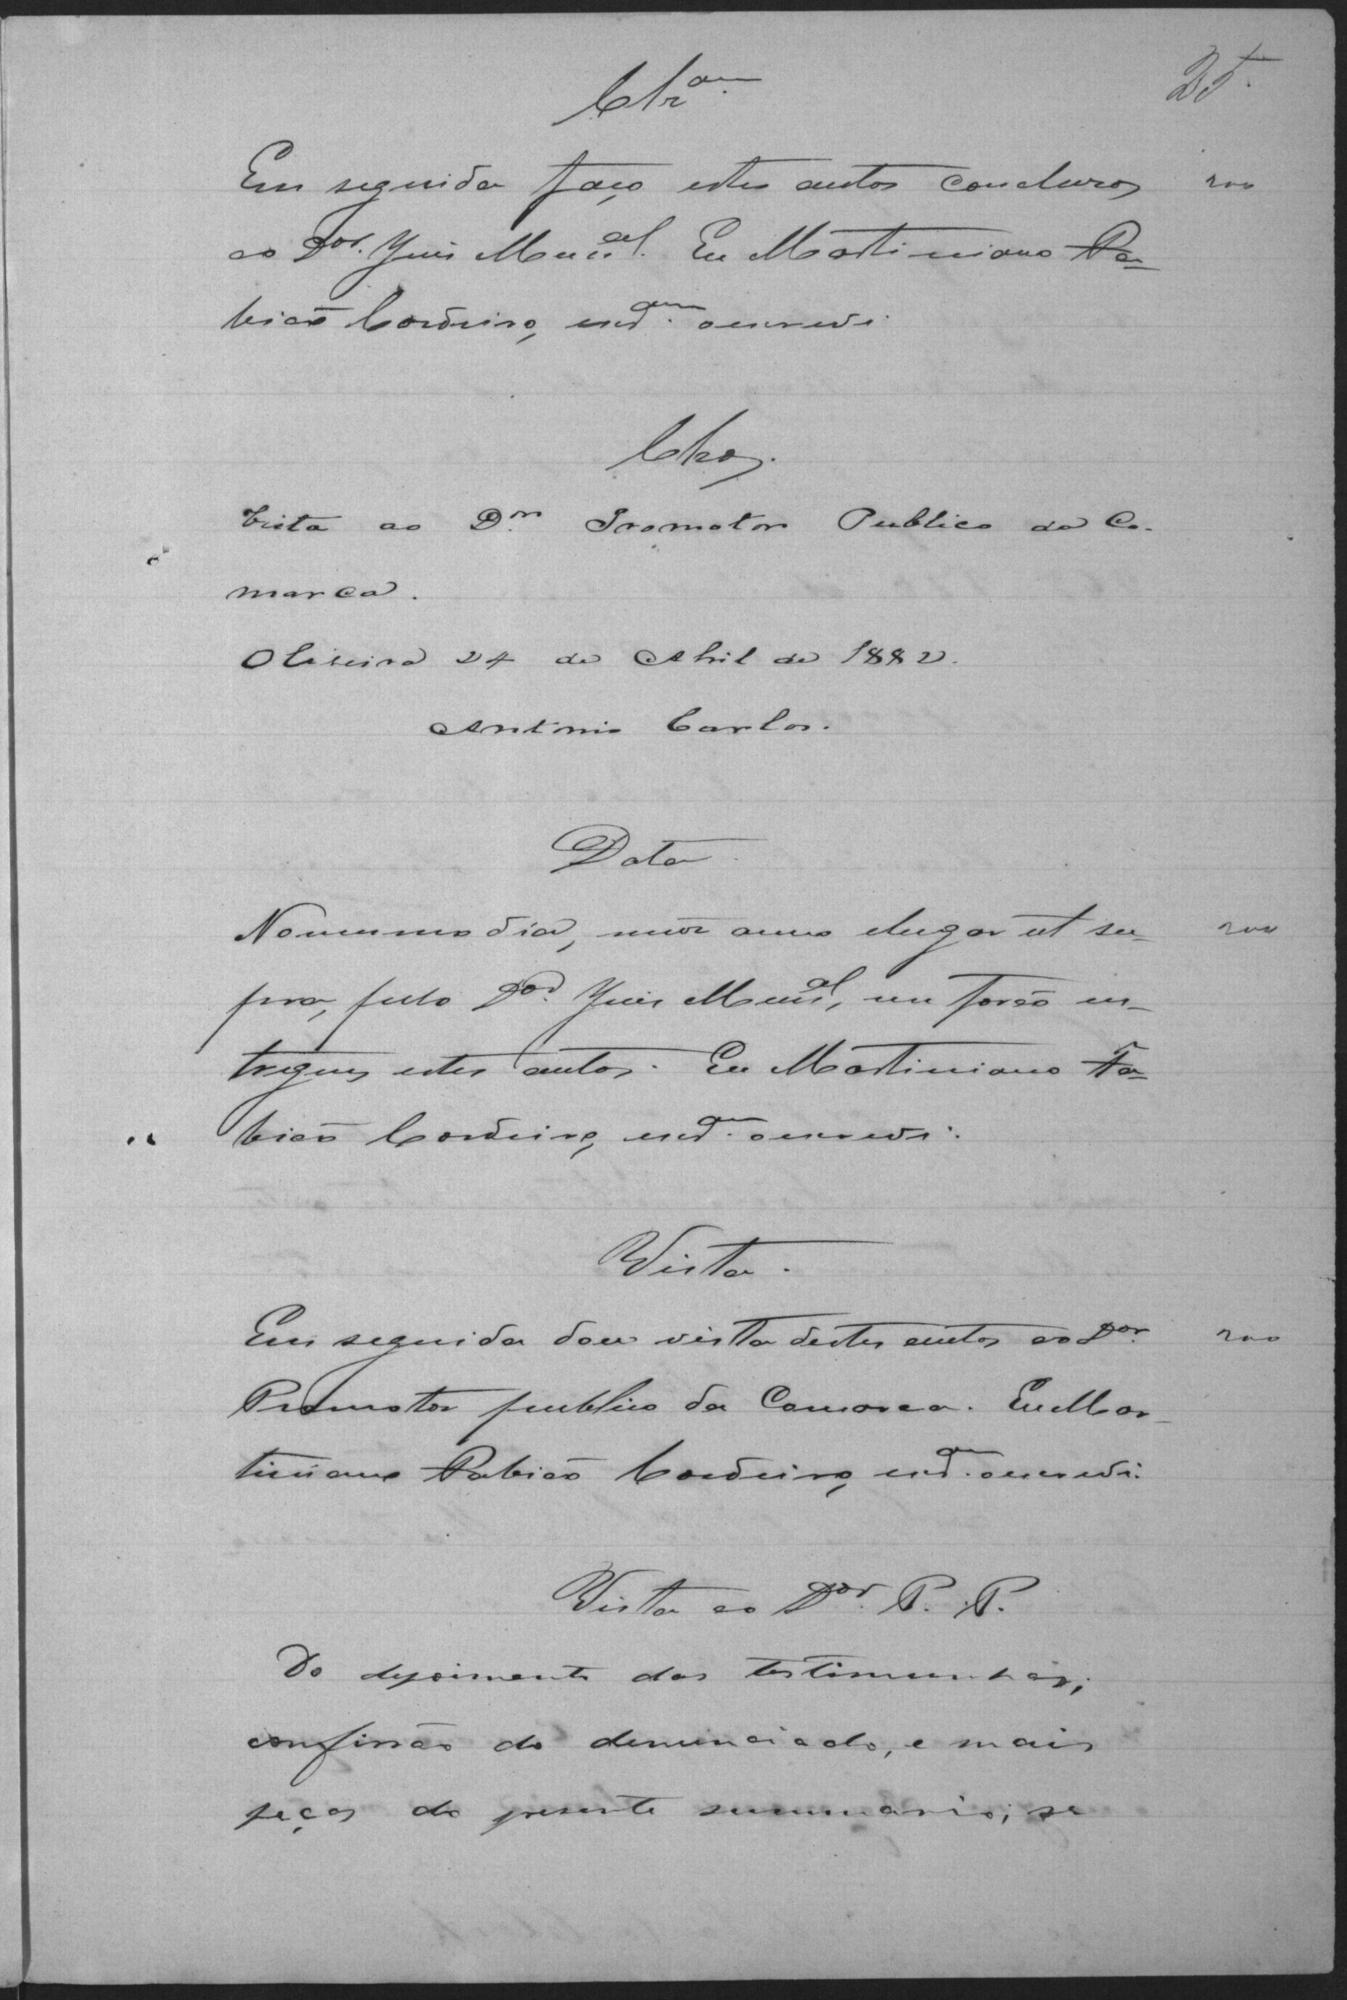 25.
Clzam.
Em seguida faço estes autos concluzos 200
ao Dor. Juis Munical. Eu Martiniano Pa-
bicio Cordeiro, escram. o escrevi.
Clzos.
Vista ao Dor Promotor Publico da Co-
marca.
Oliveira 24 de Abril de 1882.
Antonio Carlos.
Data
No mesmo dia, mez anno e lugar ut su- 200
pra, pelo Dor. Juis Munical, me forão en-
tregues estes autos. Eu Martiniano Pa-
bicio Cordeiro, escram. o escrevi.
Vista.
Em seguida dou vista destes autos ao Dor. 200
Promotor publico da Comarca. Eu Mar-
tiniano Pabicio Cordeiro, escram. o escrevi.
Vista ao Dor. P. P.
Do depoimento das testimunhas;
confissão do denunciado, e mais
peças do presente summario; se